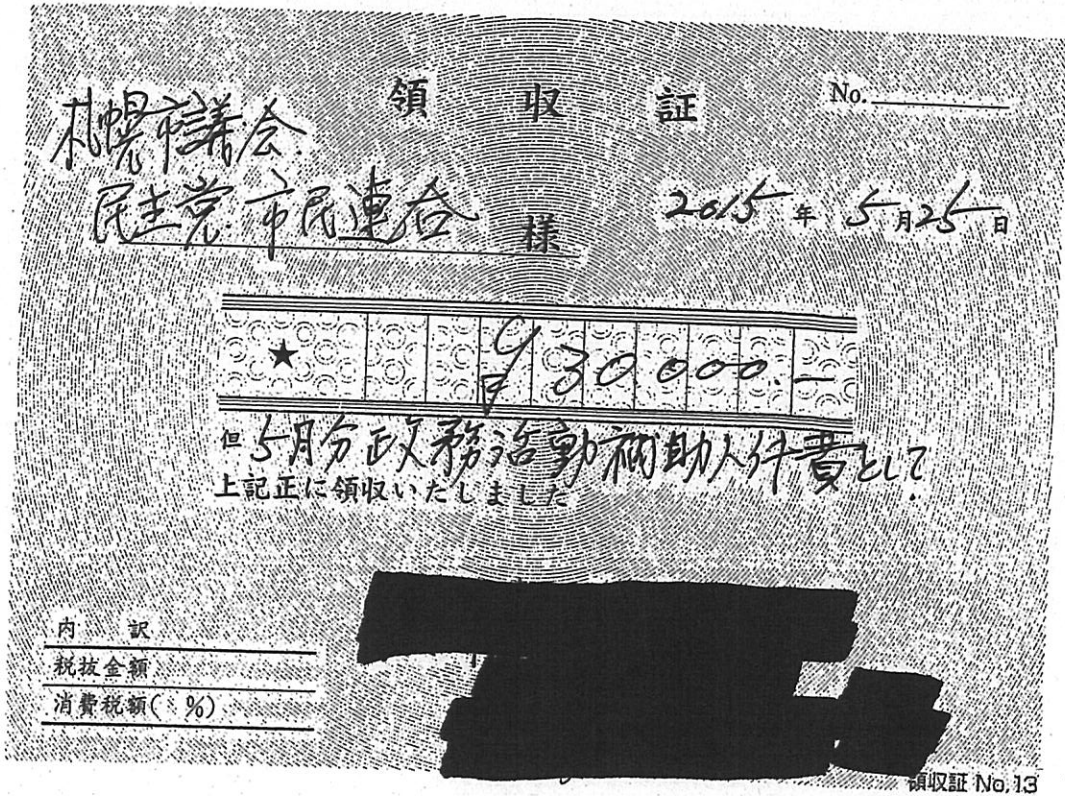 領収証 No.
札幌市議会
民主党 市民連合 様
2015年 5月25日
★ ¥30000.-
但 5月分政務活動補助人件費として
上記正に領収いたしました
内 訳
税抜金額
消費税額( %)
領収証 No.13